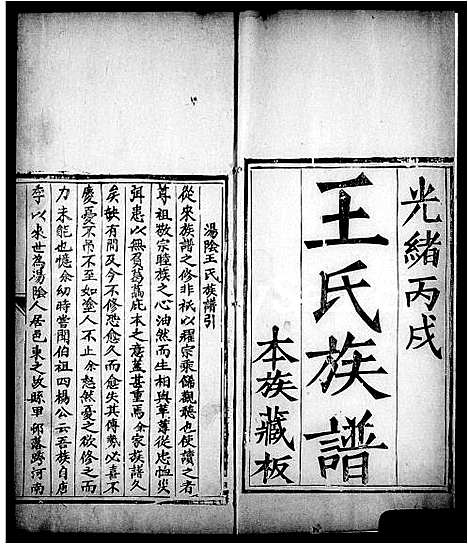 光緒丙戌
王氏族譜
本族藏板
湯陰王氏族譜引
從來族譜之修非祇以耀宗乘備觀聽也使讀之者
尊祖敬宗睦族之心油然而生相與革薄從忠恤災
弭患以無負葛藟庇本之意蓋甚重焉余家族譜久
矣缺有間及今不修恐愈久而愈失其傳勢必喜不
慶憂不吊不至如塗人不止余愀然憂之欲修之而
力未能也憶余幼時嘗聞伯祖四楊公云吾族自唐
季以來世為湯陰人居邑東之故縣甲邨墓跨河南